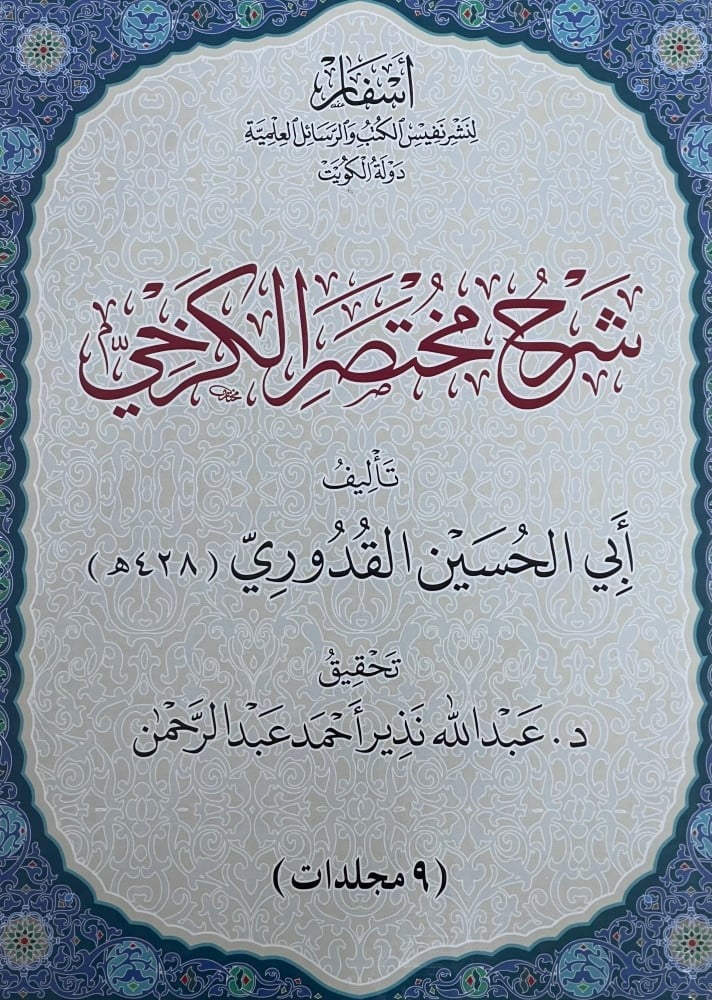 أسفار
لِنَشْرِ نَفِيسِ الكُتُبِ وَالرَّسَائِلِ العِلْمِيَّةِ
دَوْلَةُ الكُوَيْت
شَرْحُ مُخْتَصَرِ الكَرْخِيِّ
تَأْلِيفُ
أَبِي الحُسَيْنِ القُدُورِيِّ (٤٢٨ه)
تَحْقِيقُ
د. عَبْدالله نَذِير أَحْمَد عَبْدالرَّحْمٰن
(٩ مجلدات)